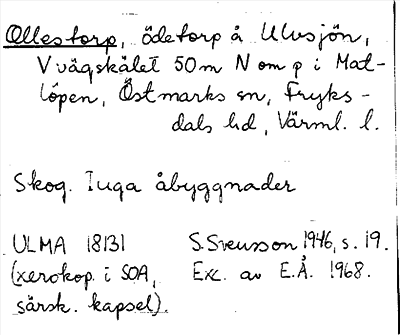 Ollestorp, ödetorp å Ulvsjön,
V vägskälet 50 m N om p i Mat-
löpen, Östmarks sn, Fryks-
dals hd, Värml. l.
Skog. Inga åbyggnader
ULMA 18131 S. Svensson 1946, s. 19.
(xerokop. i SOA, Exc. av E.Å. 1968.
särsk. kapsel).